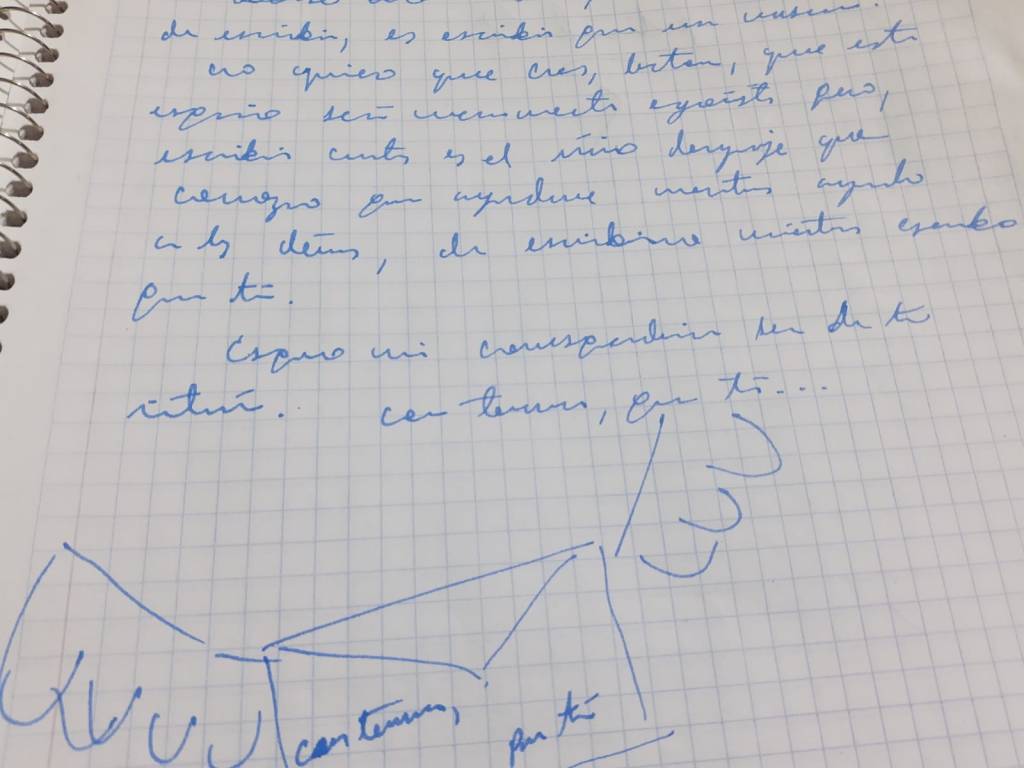 de escribir, es escribir para un
no quiero que creas, que este
espacio será meramente egoísta pero,
escribir cartas es el único lenguaje que
conozco para ayudarme mientras ayudo
a los demás, de escribirme mientras escribo
para ti.
Espero mi correspondencia sea de tu
interés. con ternura, para ti...
con ternura,
para ti